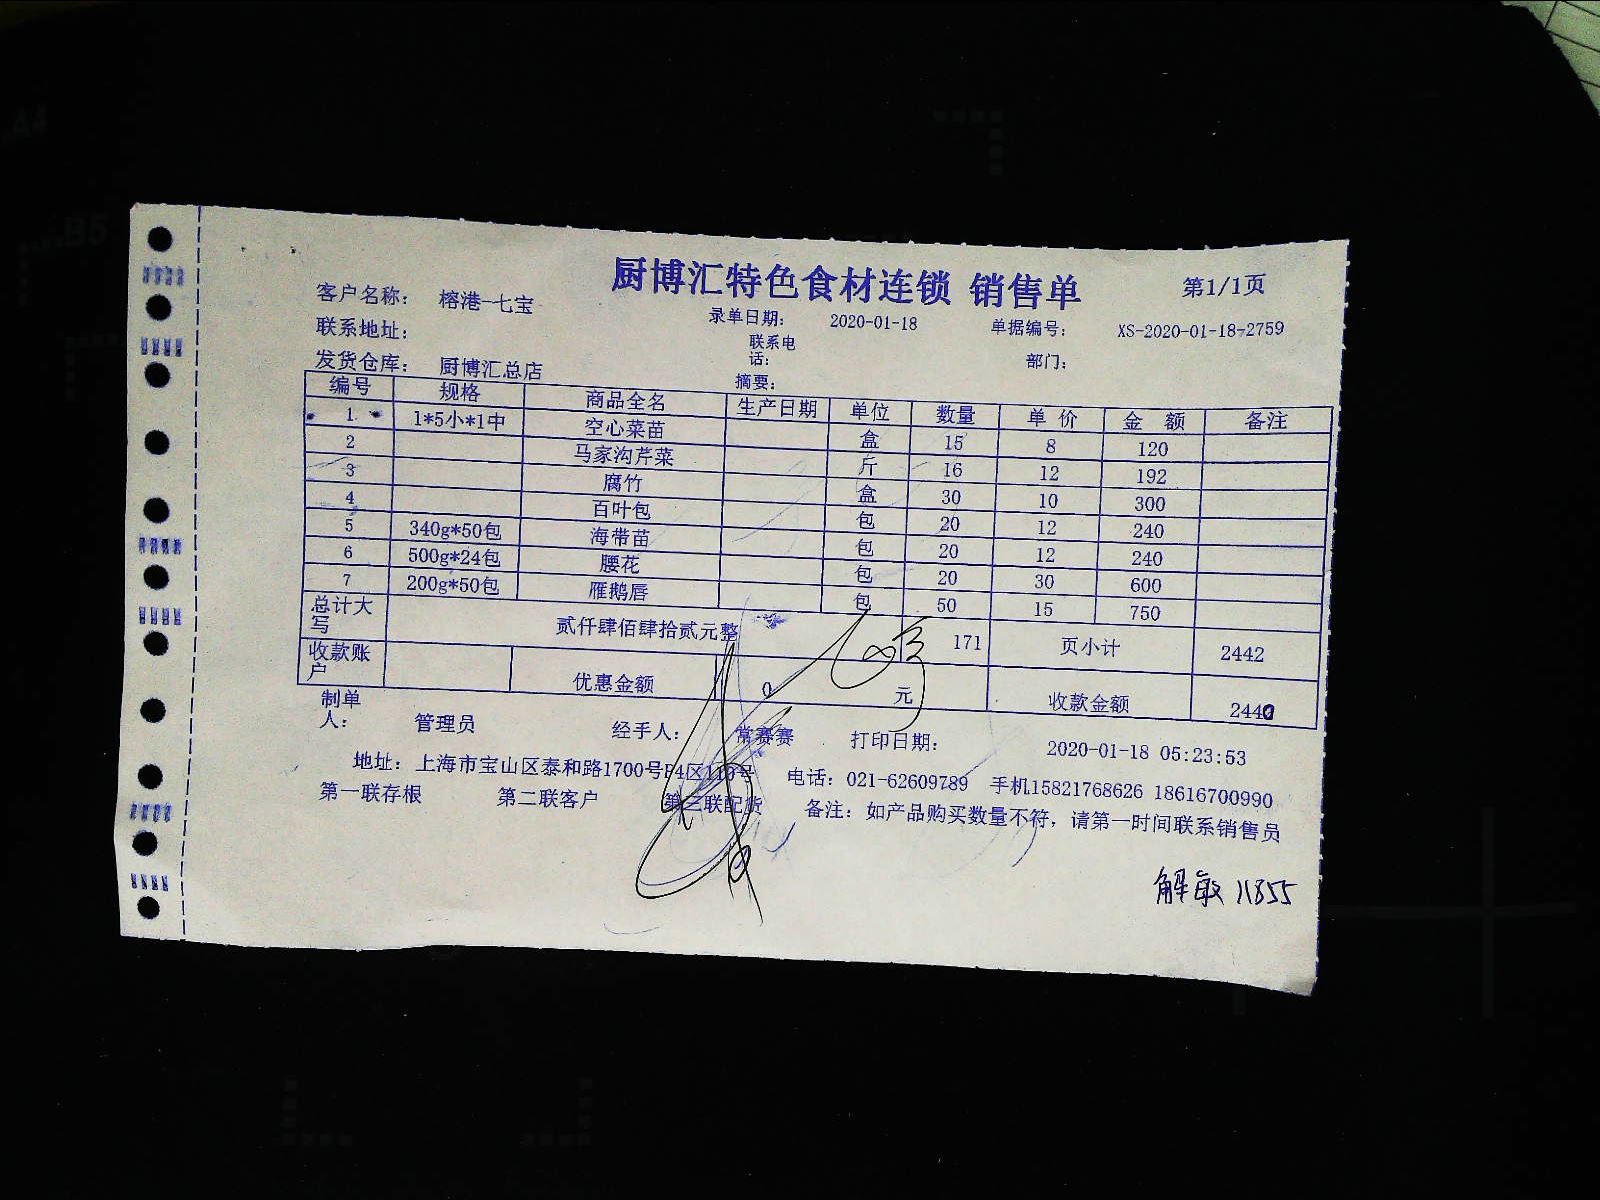 厨博汇特色食材连锁 销售单 第1/1页
客户名称： 榕港-七宝 录单日期： 2020-01-18 单据编号： XS-2020-01-18-2759
联系地址： 联系电话： 部门：
发货仓库： 厨博汇总店 摘要：
编号 规格 商品全名 生产日期 单位 数量 单 价 金 额 备注
1 1*5小*1中 空心菜苗 盒 15 8 120
2 马家沟芹菜 斤 16 12 192
3 腐竹 盒 30 10 300
4 百叶包 包 20 12 240
5 340g*50包 海带苗 包 20 12 240
6 500g*24包 腰花 包 20 30 600
7 200g*50包 雁鹅唇 包 50 15 750
总计大写 贰仟肆佰肆拾贰元整 171 页小计 2442
收款账户 优惠金额 0 元 收款金额 2440
制单人： 管理员 经手人： 常赛赛 打印日期： 2020-01-18 05:23:53
地址：上海市宝山区泰和路1700号 电话：021-62609789 手机15821768626 18616700990
第一联存根 第二联客户 第三联配货 备注：如产品购买数量不符，请第一时间联系销售员
解敏 11855